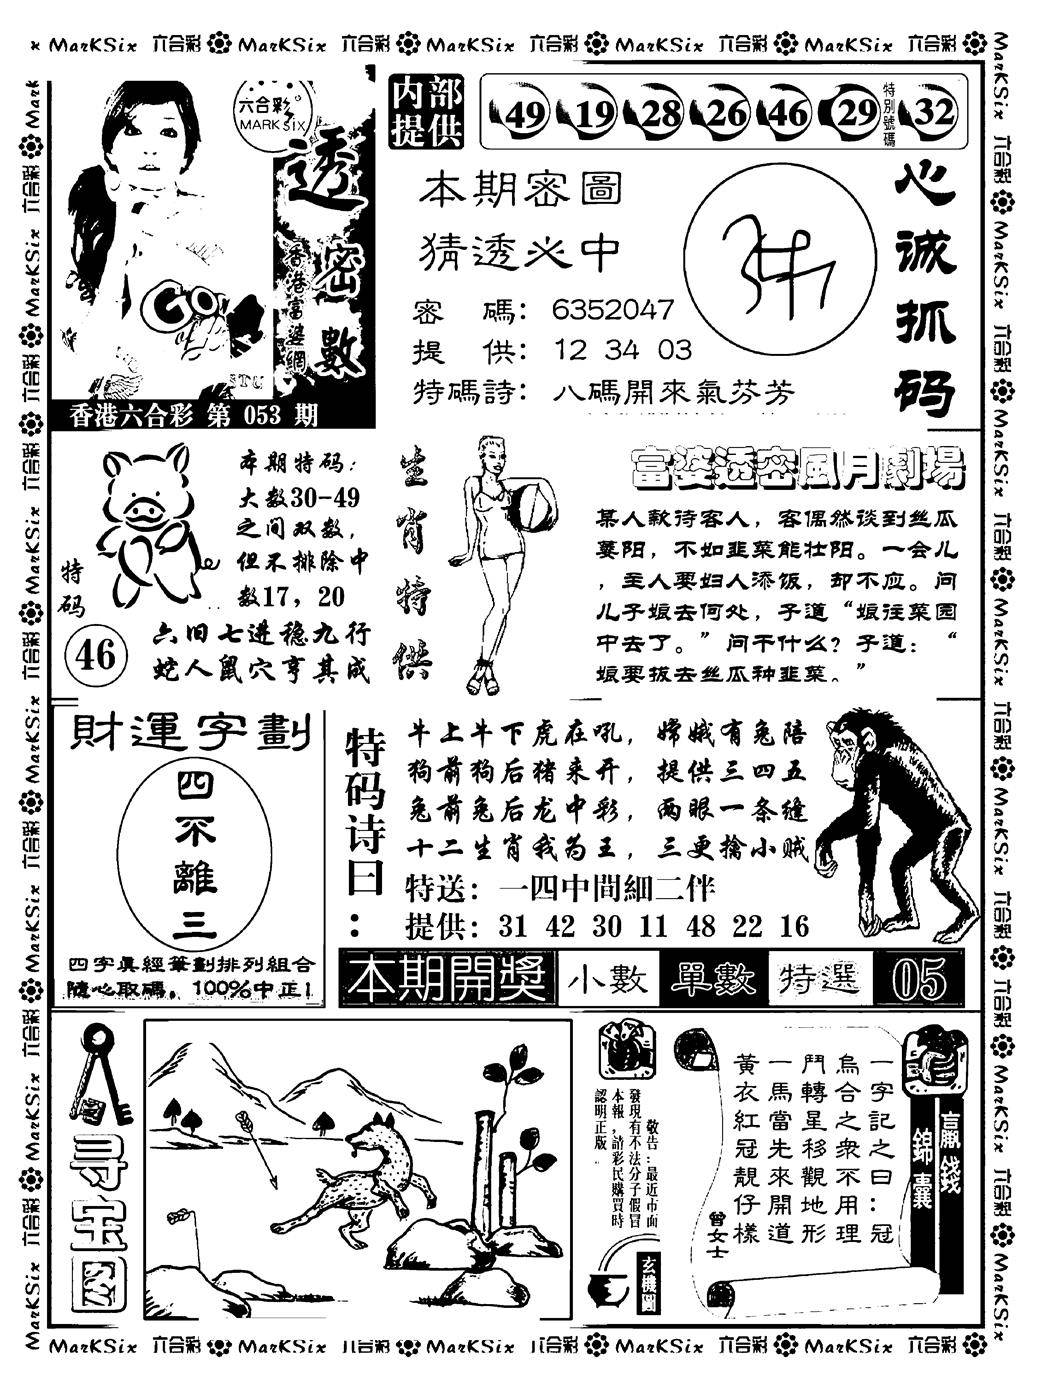 MarKSix 六合彩 MarKSix 六合彩 MarKSix 六合彩 MarKSix 六合彩 MarKSix 六合彩
六合彩
MARK SIX
透密數
香港富婆網
香港六合彩 第 053 期
内部
提供
49 19 28 26 46 29
特別號碼
32
本期密圖
猜透必中
密 碼：6352047
提 供：12 34 03
特碼詩：八碼開來氣芬芳
心诚抓码
特码
46
本期特码：
大数30-49
之间双数，
但不排除中
数17，20
六旧七进稳九行
蛇人鼠穴亨其成
生肖特供
富婆透密風月劇場
某人款待客人，客偶然谈到丝瓜
萎阳，不如韭菜能壮阳。一会儿
，主人要妇人添饭，却不应。问
儿子娘去何处，子道“娘往菜园
中去了。”问干什么？子道：“
娘要拔去丝瓜种韭菜。”
財運字劃
四不離三
四字眞經筆劃排列組合
隨心取碼，100%中正！
特码诗曰：
牛上牛下虎在吼，嫦娥有兔陪
狗前狗后猪来开，提供三四五
兔前兔后龙中彩，两眼一条缝
十二生肖我为王，三更擒小贼
特送：一四中間細二伴
提供：31 42 30 11 48 22 16
本期開獎 小數 單數 特選 05
寻宝图
敬告：最近市面
發現有不法分子假冒
本報，請彩民購買時
認明正版
玄機圖
贏錢
錦囊
一字記之曰：冠
烏合之衆不用理
鬥轉星移觀地形
一馬當先來開道
黃衣紅冠靚仔樣
曾女士
MarKSix 六合彩 MarKSix 六合彩 MarKSix 六合彩 MarKSix 六合彩 MarKSix 六合彩